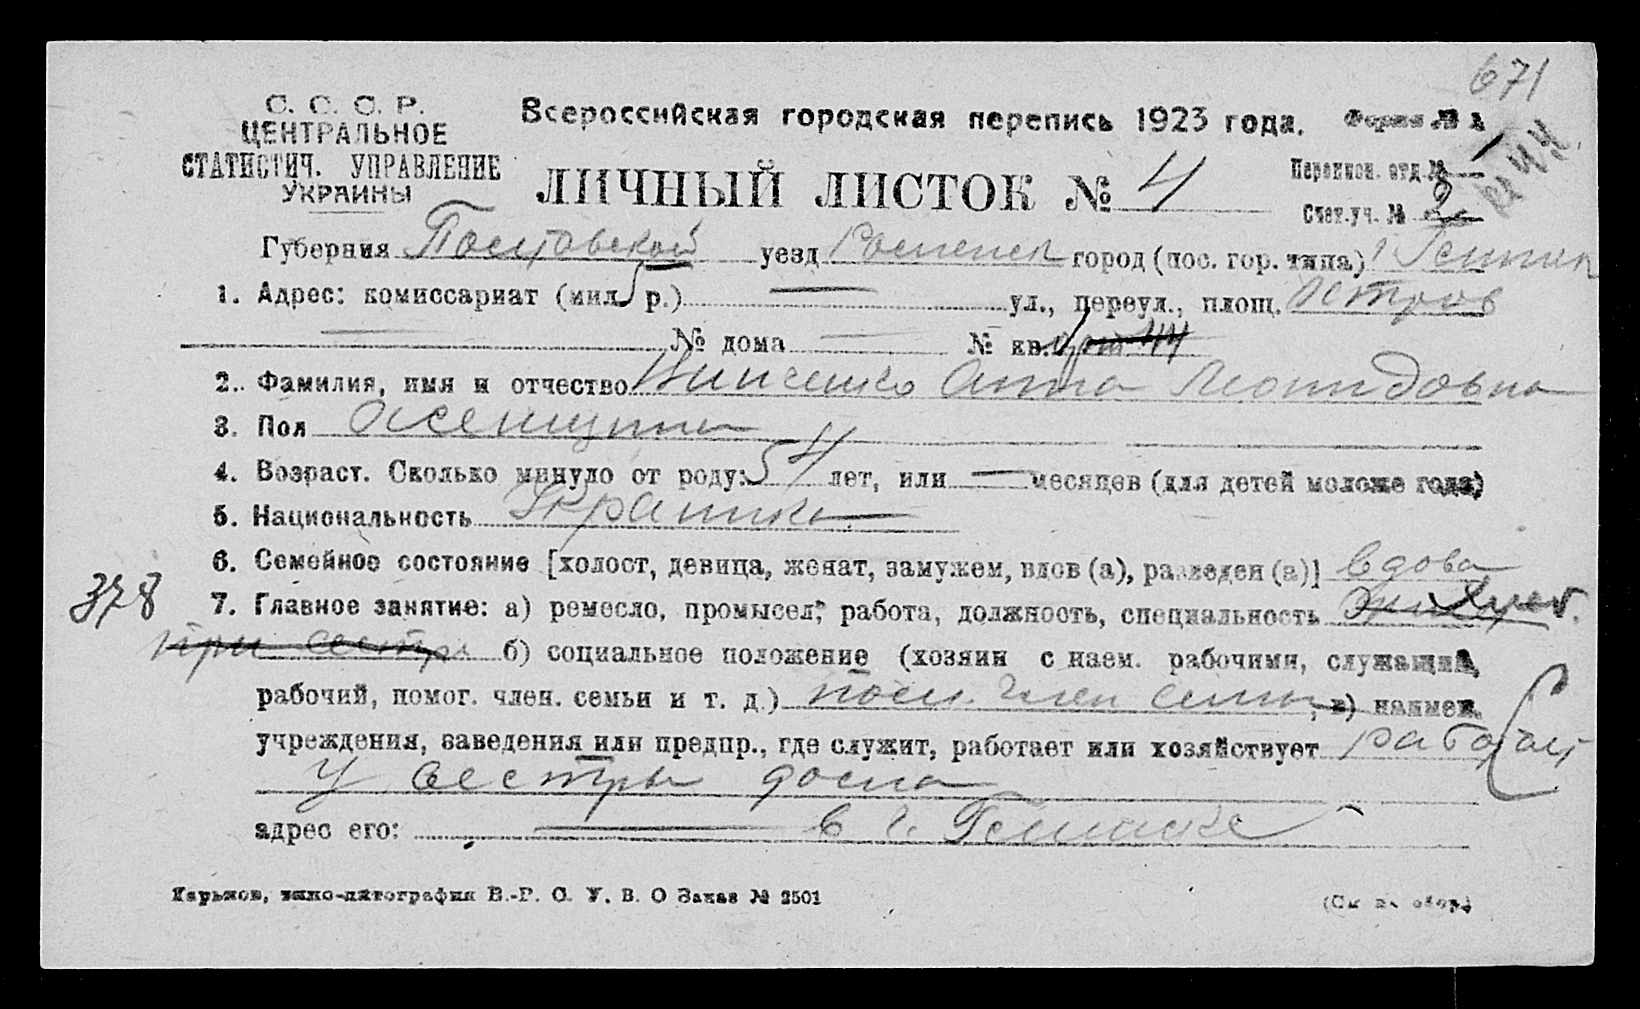 671
С. С. С. Р.
ЦЕНТРАЛЬНОЕ
СТАТИСТИЧ. УПРАВЛЕНИЕ
УКРАИНЫ
Всероссийская городская перепись 1923 года. Форма №
ЛИЧНЫЙ ЛИСТОК № 4
Переписн. отд. №
Счет. уч. № 2
Губерния Полтавской уезд Роменск город (пос. гор. типа) г Гельмяз
1. Адрес: комиссариат (мил. р.) — ул., переул., площ. Остров
— № дома — № кв.
2. Фамилия, имя и отчество Винченко Анна Леонидовна
3. Пол женщина
4. Возраст. Сколько минуло от роду: 54 лет, или — месяцев (для детей моложе года)
5. Национальность Украинка
6. Семейное состояние [холост, девица, женат, замужем, вдов (а), разведен (а)] вдова
378
7. Главное занятие: а) ремесло, промысел, работа, должность, специальность
при сестре б) социальное положение (хозяин с наем. рабочими, служащий,
рабочий, помог. член. семьи и т. д.) пом. член семьи, в) наимен.
учреждения, заведения или предпр., где служит, работает или хозяйствует работает
у сестры дома
адрес его: — в г.
Харьков, типо-литография В.-Р. С. У. В. О Заказ № 2501
(См на обор.)